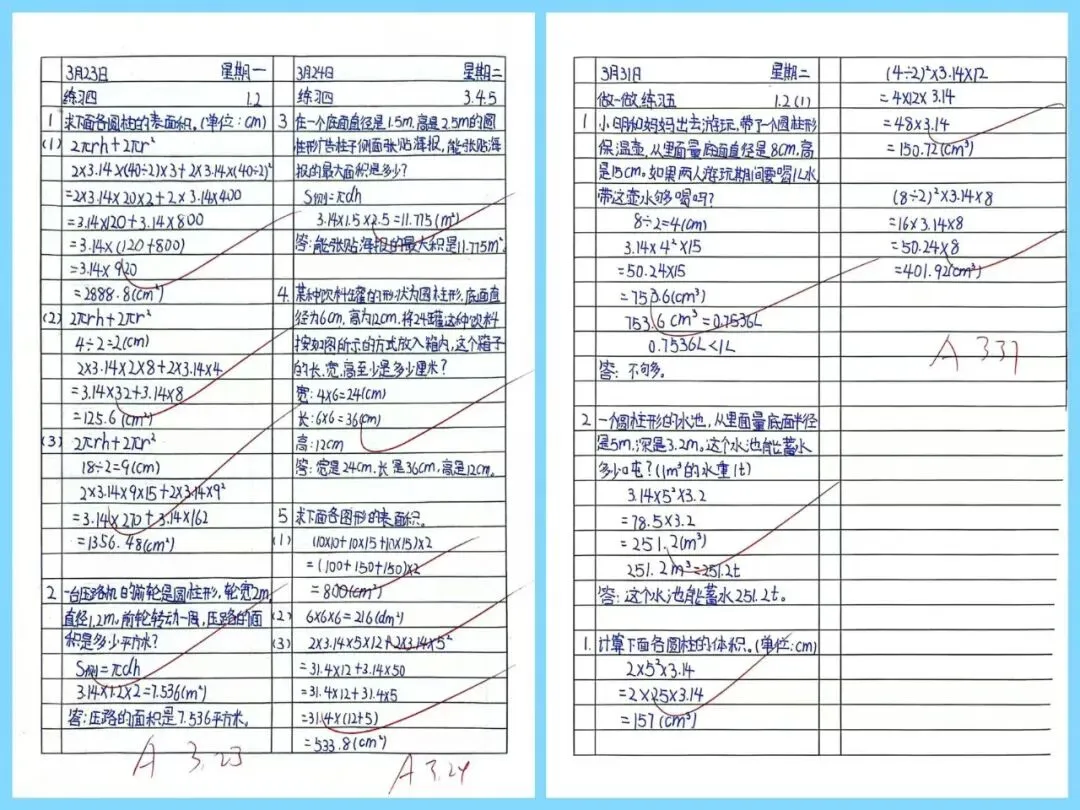 3月23日 星期一
练习四 1.2
1 求下面各圆柱的表面积。(单位:cm)
(1) 2πrh+2πr²
2×3.14×(40÷2)×3+2×3.14×(40÷2)²
=2×3.14×20×2+2×3.14×400
=3.14×120+3.14×800
=3.14×(120+800)
=3.14×920
=2888.8(cm²)
(2) 2πrh+2πr²
4÷2=2(cm)
2×3.14×2×8+2×3.14×4
=3.14×32+3.14×8
=125.6(cm²)
(3) 2πrh+2πr²
18÷2=9(cm)
2×3.14×9×15+2×3.14×9²
=3.14×270+3.14×162
=1356.48(cm²)
2 一台压路机的前轮是圆柱形,轮宽2m,
直径1.2m,前轮转动一周,压路的面
积是多少平方米?
S侧=πdh
3.14×1.2×2=7.536(m²)
答:压路的面积是7.536平方米。
A 3.23
3月24日 星期二
练习四 3.4.5
3 在一个底面直径是1.5m,高是2.5m的圆
柱形广告柱子侧面张贴海报,能张贴海
报的最大面积是多少?
S侧=πdh
3.14×1.5×2.5=11.775(m²)
答:能张贴海报的最大积是11.775m²。
4. 某种饮料罐的形状为圆柱形,底面直
径为6cm,高为12cm,将24罐这种饮料
按如图所示的方式放入箱内,这个箱子
的长、宽、高至少是多少厘米?
宽:4×6=24(cm)
长:6×6=36(cm)
高:12cm
答:宽是24cm,长是36cm,高是12cm。
5 求下面各图形的表面积。
(1) (10×10+10×15+10×15)×2
=(100+150+150)×2
=800(cm²)
(2) 6×6×6=216(dm²)
(3) 2×3.14×5×12+2×3.14×5²
=31.4×12+3.14×50
=31.4×12+31.4×5
=31.4×(12+5)
=533.8(cm²)
A 3.24
3月31日 星期二
做一做,练习五 1.2(1)
1 小明和妈妈出去游玩,带了一个圆柱形
保温壶,从里面量底面直径是8cm,高
是15cm。如果两人游玩期间要喝1L水,
带这壶水够喝吗?
8÷2=4(cm)
3.14×4²×15
=50.24×15
=753.6(cm³)
753.6cm³=0.7536L
0.7536L<1L
答:不够。
2 一个圆柱形的水池,从里面量底面半径
是5m,深是3.2m。这个水池能蓄水
多少吨?(1m³的水重1t)
3.14×5²×3.2
=78.5×3.2
=251.2(m³)
251.2m³=251.2t
答:这个水池能蓄水251.2t。
1. 计算下面各圆柱的体积。(单位:cm)
2×5²×3.14
=2×25×3.14
=157(cm³)
(4÷2)²×3.14×12
=4×12×3.14
=48×3.14
=150.72(cm³)
(8÷2)²×3.14×8
=16×3.14×8
=50.24×8
=401.92(cm³)
A 331